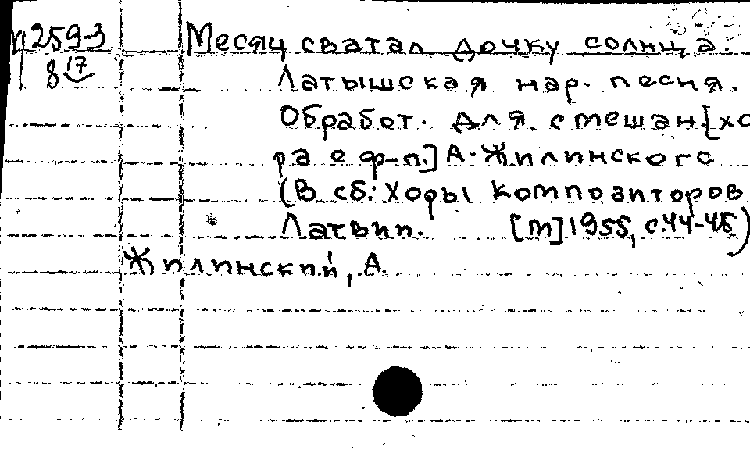 П259-3
8 17
Месяц сватал дочку солнца.
Латышская нар. песня.
Обработ. для смешан[хо
ра с ф-п.] А. Жилинского
(В сб.: Хоры композиторов
Латвии. [М] 1955, с.44-45)
Жилинский, А.